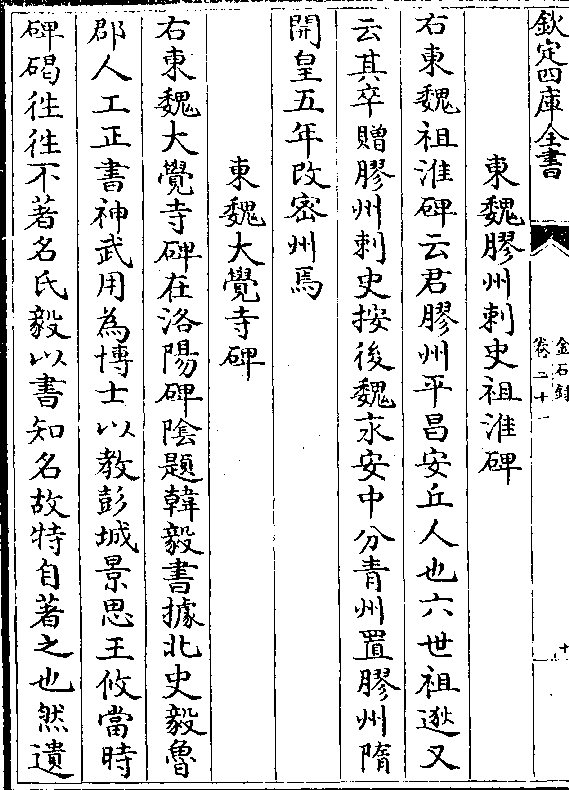 欽定四庫全書
金石錄
卷二十一
十一
東魏膠州刺史祖淮碑
右東魏祖淮碑云君膠州平昌安丘人也六世祖逖又
云其卒贈膠州刺史按後魏永安中分青州置膠州隋
開皇五年改密州焉
東魏大覺寺碑
右東魏大覺寺碑在洛陽碑隂題韓毅書據北史毅魯
郡人工正書神武用為博士以教彭城景思王攸當時
碑碣徃徃不著名氏毅以書知名故特自著之也然遺